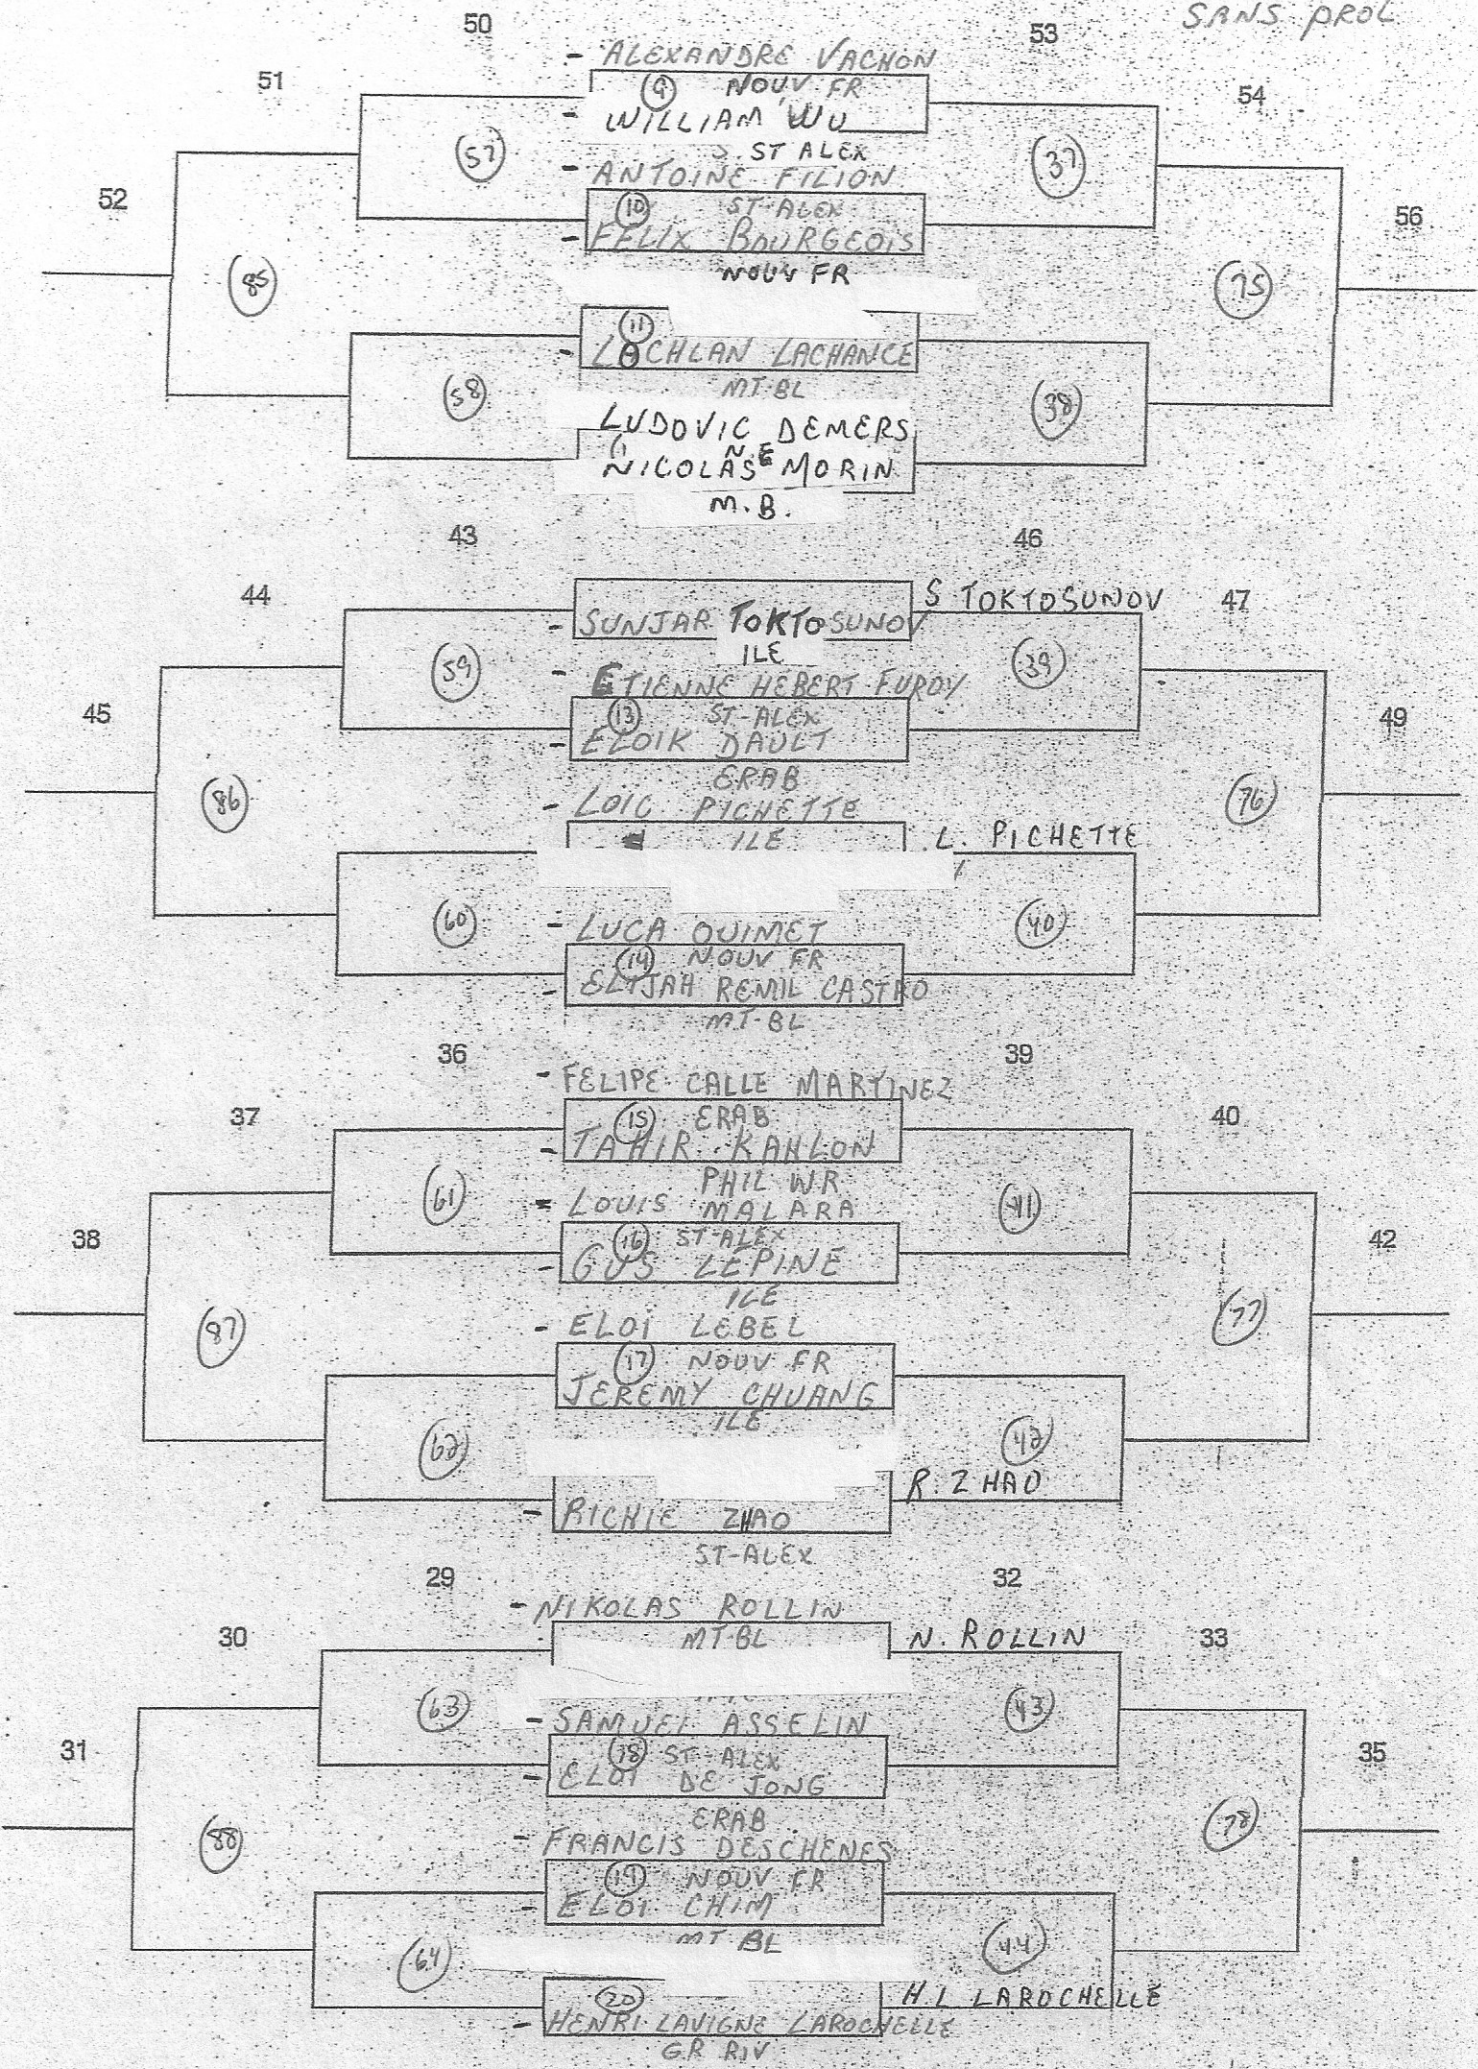 SANS PROL
50
53
- ALEXANDRE VACHON
51
54
9 NOUV FR
- WILLIAM WU
57
37
ST ALEX
- ANTOINE FILION
52
56
10 ST-ALEX
- FELIX BOURGEOIS
NOUV FR
85
75
11
- LACHLAN LACHANCE
MT-BL
58
38
LUDOVIC DEMERS
N.E
NICOLAS MORIN
M.B.
43
46
44
47
S TOKTOSUNOV
- SUNJAR TOKTOSUNOV
ILE
59
39
- ETIENNE HEBERT-FUROY
45
49
13 ST-ALEX
- ELOIK DAULT
ERAB
86
76
- LOIC PICHETTE
ILE
L. PICHETTE
60
40
- LUCA OUIMET
14 NOUV FR
- ELIJAH REMIL CASTRO
MT-BL
36
39
- FELIPE CALLE MARTINEZ
37
40
15 ERAB
- TAHIR KAHLON
PHIL WR
61
41
- LOUIS MALARA
38
42
16 ST-ALEX
- GUS LEPINE
ILE
87
77
- ELOI LEBEL
17 NOUV FR
JEREMY CHUANG
ILE
62
42
R. ZHAO
- RICHIE ZHAO
ST-ALEX
29
32
- NIKOLAS ROLLIN
30
33
MT-BL
N. ROLLIN
63
43
- SAMUEL ASSELIN
31
35
18 ST-ALEX
- ELOI DE JONG
ERAB
88
78
- FRANCIS DESCHENES
19 NOUV FR
- ELOI CHIM
MT BL
64
44
20
H.L LAROCHELLE
- HENRI LAVIGNE LAROCHELLE
GR RIV